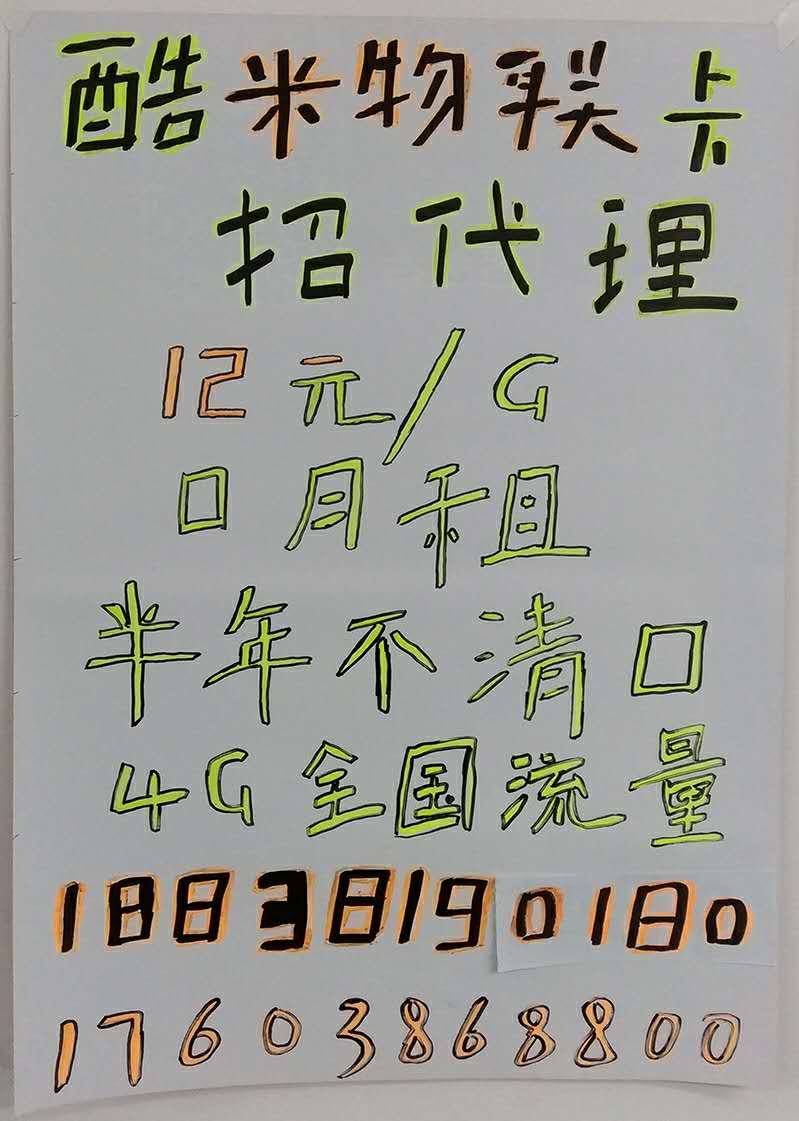 酷米物联卡
招代理
12元/G
0月租
半年不清0
4G全国流量
18838190180
17603868800